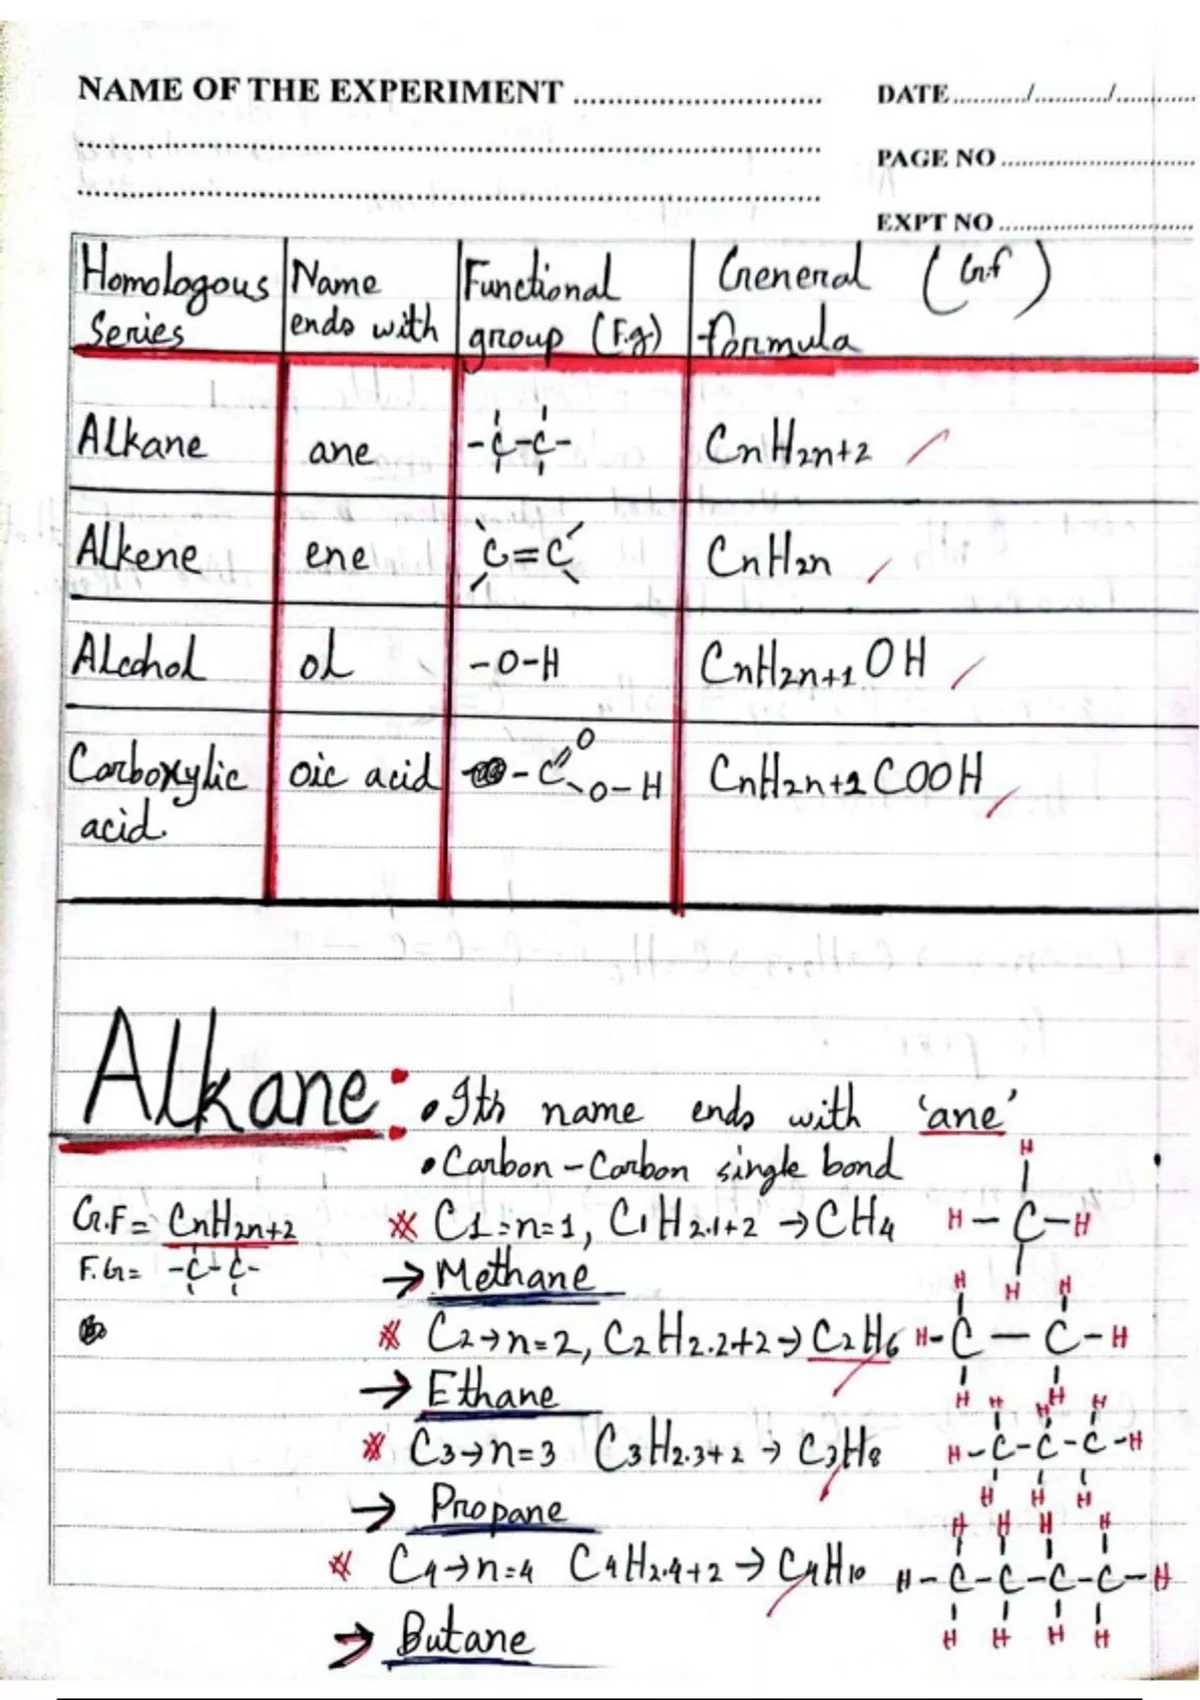 NAME OF THE EXPERIMENT ............................
DATE ............/............/............
PAGE NO ............................
EXPT NO ............................
Homologous Series | Name ends with | Functional group (F.g) | General formula (G.f)
Alkane | ane | -C-C- | CnH2n+2
Alkene | ene | C=C | CnH2n
Alcohol | ol | -O-H | CnH2n+1 OH
Carboxylic acid. | oic acid | -C O O-H | CnH2n+1 COOH
Alkane:
• Its name ends with 'ane'
• Carbon-Carbon single bond
G.F = CnH2n+2
F.G = -C-C-
C1=n=1, C1H2.1+2 → CH4
H
H-C-H
H
→ Methane
C2→n=2, C2H2.2+2 → C2H6
H H
H-C-C-H
H H
→ Ethane
C3→n=3 C3H2.3+2 → C3H8
H H H
H-C-C-C-H
H H H
→ Propane
C4→n=4 C4H2.4+2 → C4H10
H H H H
H-C-C-C-C-H
H H H H
→ Butane